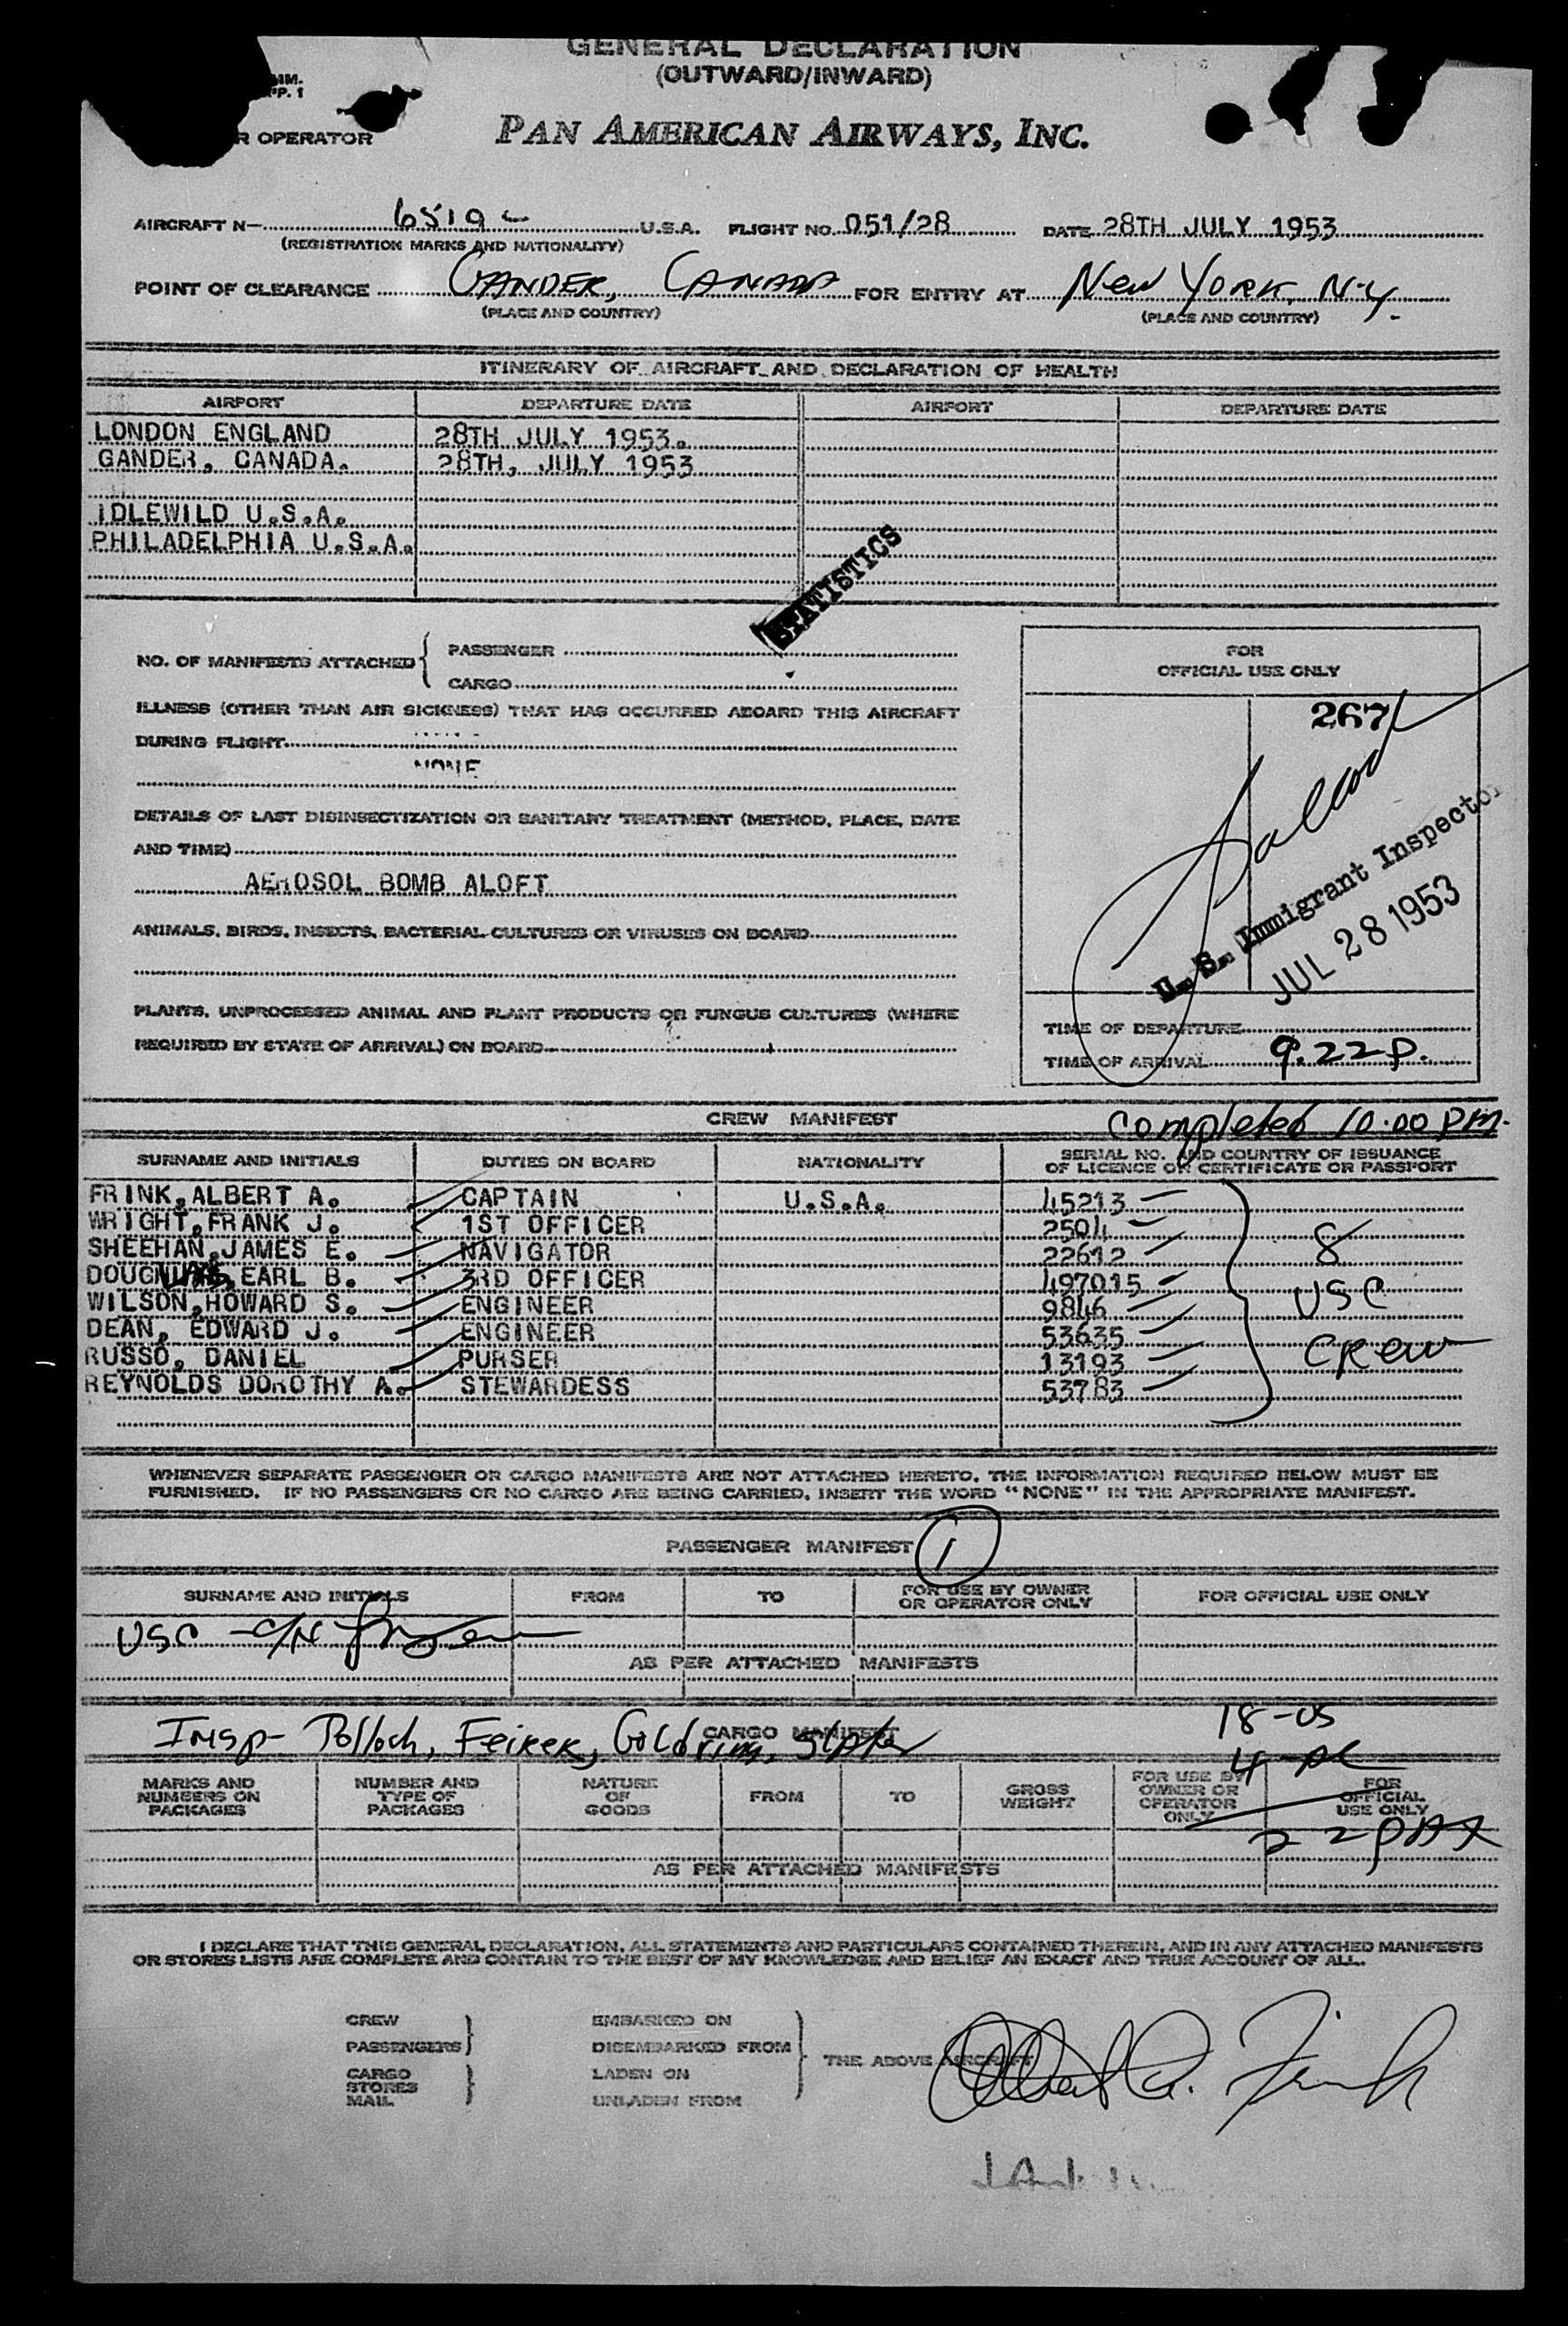 GENERAL DECLARATION
(OUTWARD/INWARD)
MM.
PP. 1
R OPERATOR
PAN AMERICAN AIRWAYS, INC.
AIRCRAFT N- 6519 U.S.A. FLIGHT NO. 051/28 DATE 28TH JULY 1953
(REGISTRATION MARKS AND NATIONALITY)
POINT OF CLEARANCE GANDER, CANADA FOR ENTRY AT New YORK, N.Y.
(PLACE AND COUNTRY) (PLACE AND COUNTRY)
ITINERARY OF AIRCRAFT AND DECLARATION OF HEALTH
AIRPORT DEPARTURE DATE AIRPORT DEPARTURE DATE
LONDON ENGLAND 28TH JULY 1953.
GANDER, CANADA. 28TH, JULY 1953
IDLEWILD U.S.A.
PHILADELPHIA U.S.A.
STATISTICS
NO. OF MANIFESTS ATTACHED { PASSENGER
CARGO
ILLNESS (OTHER THAN AIR SICKNESS) THAT HAS OCCURRED ABOARD THIS AIRCRAFT
DURING FLIGHT
NONE
DETAILS OF LAST DISINSECTIZATION OR SANITARY TREATMENT (METHOD, PLACE, DATE
AND TIME)
AEROSOL BOMB ALOFT
ANIMALS, BIRDS, INSECTS, BACTERIAL CULTURES OR VIRUSES ON BOARD
PLANTS, UNPROCESSED ANIMAL AND PLANT PRODUCTS OR FUNGUS CULTURES (WHERE
REQUIRED BY STATE OF ARRIVAL) ON BOARD
FOR
OFFICIAL USE ONLY
267
U. S. Immigrant Inspector
JUL 28 1953
TIME OF DEPARTURE
TIME OF ARRIVAL 9.22 P.
CREW MANIFEST
Completed 10.00 PM.
SURNAME AND INITIALS DUTIES ON BOARD NATIONALITY SERIAL NO. AND COUNTRY OF ISSUANCE
OF LICENCE OR CERTIFICATE OR PASSPORT
FRINK, ALBERT A. CAPTAIN U.S.A. 45213
WRIGHT, FRANK J. 1ST OFFICER 2504
SHEEHAN, JAMES E. NAVIGATOR 22612
EARL B. 3RD OFFICER 497015
WILSON, HOWARD S. ENGINEER 9846
DEAN, EDWARD J. ENGINEER 53635
RUSSO, DANIEL PURSER 13193
REYNOLDS DOROTHY A. STEWARDESS 53783
8
USC
CREW
WHENEVER SEPARATE PASSENGER OR CARGO MANIFESTS ARE NOT ATTACHED HERETO, THE INFORMATION REQUIRED BELOW MUST BE
FURNISHED. IF NO PASSENGERS OR NO CARGO ARE BEING CARRIED, INSERT THE WORD "NONE" IN THE APPROPRIATE MANIFEST.
PASSENGER MANIFEST 1
SURNAME AND INITIALS FROM TO FOR USE BY OWNER
OR OPERATOR ONLY FOR OFFICIAL USE ONLY
USC
AS PER ATTACHED MANIFESTS
Insp- Polloch, Feirer, Goldring,
CARGO MANIFEST
18-US
4-
22 PAX
MARKS AND
NUMBERS ON
PACKAGES
NUMBER AND
TYPE OF
PACKAGES
NATURE
OF
GOODS
FROM
TO
GROSS
WEIGHT
FOR USE BY
OWNER OR
OPERATOR
ONLY
FOR
OFFICIAL
USE ONLY
AS PER ATTACHED MANIFESTS
I DECLARE THAT THIS GENERAL DECLARATION, ALL STATEMENTS AND PARTICULARS CONTAINED THEREIN, AND IN ANY ATTACHED MANIFESTS
OR STORES LISTS ARE COMPLETE AND CONTAIN TO THE BEST OF MY KNOWLEDGE AND BELIEF AN EXACT AND TRUE ACCOUNT OF ALL.
CREW EMBARKED ON
PASSENGERS DISEMBARKED FROM
THE ABOVE AIRCRAFT
CARGO LADEN ON
STORES
MAIL UNLADEN FROM
Albert A. Frink